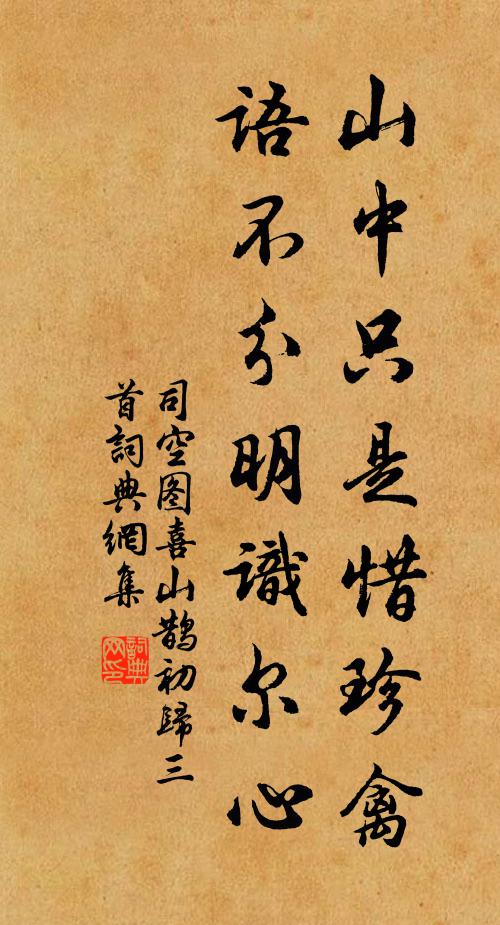 山中只是惜珍禽
語不分明識尔心
司空图喜山鵲初歸三
首詞典網集
詞典
网印